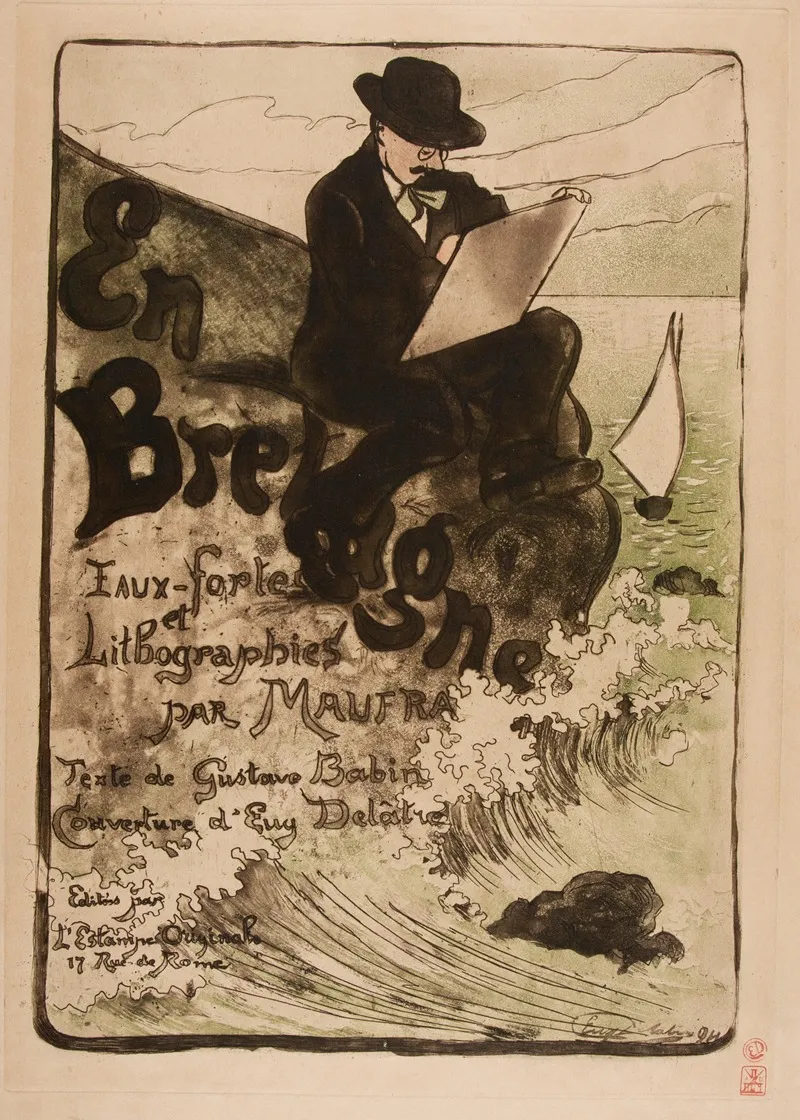 En
Bretagne
Eaux-fortes
et
Lithographies
par MAUFRA
Texte de Gustave Babin
Couverture d'Eug Delâtre
Editées par
L'Estampe Originale
17 Rue de Rome